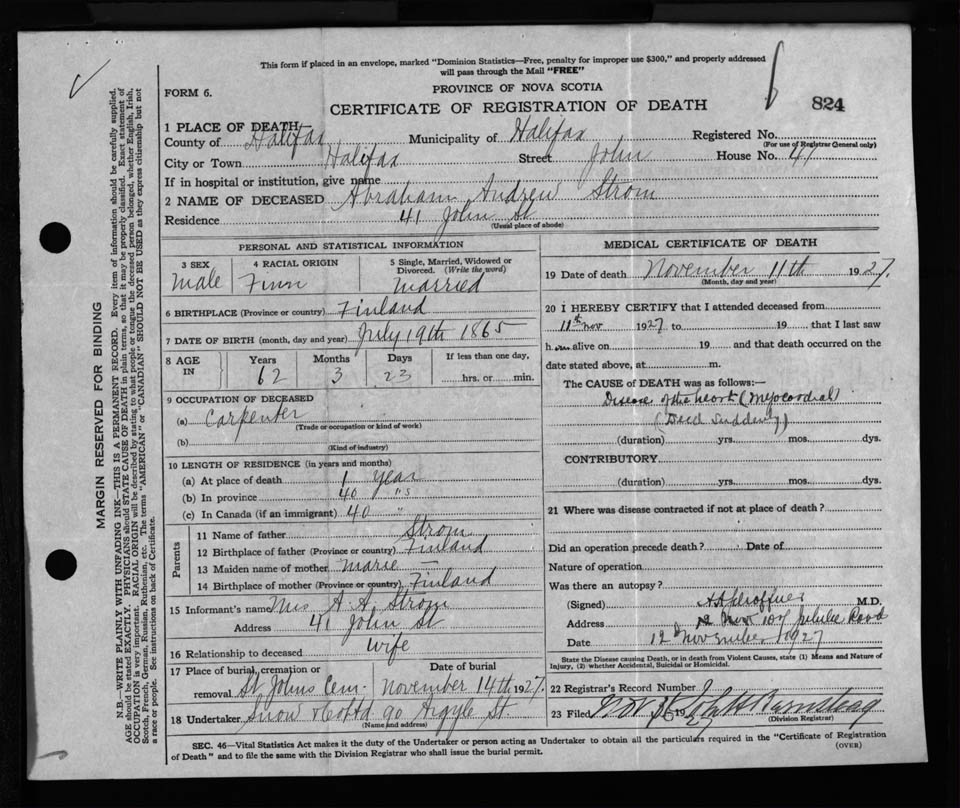 This form if placed in an envelope, marked "Dominion Statistics—Free, penalty for improper use $300," and properly addressed
will pass through the Mail "FREE"
FORM 6.
PROVINCE OF NOVA SCOTIA
CERTIFICATE OF REGISTRATION OF DEATH
824
1 PLACE OF DEATH—
County of Halifax Municipality of Halifax Registered No.
(For use of Registrar General only)
City or Town Halifax Street John House No. 41
If in hospital or institution, give name
2 NAME OF DECEASED Abraham Andrew Strom
Residence 41 John St
(Usual place of abode)
PERSONAL AND STATISTICAL INFORMATION
3 SEX 4 RACIAL ORIGIN 5 Single, Married, Widowed or
Divorced. (Write the word)
Male Finn Married
6 BIRTHPLACE (Province or country) Finland
7 DATE OF BIRTH (month, day and year) July 19th 1865
8 AGE IN Years Months Days If less than one day,
62 3 23 hrs. or min.
9 OCCUPATION OF DECEASED
(a) Carpenter
(Trade or occupation or kind of work)
(b)
(Kind of industry)
10 LENGTH OF RESIDENCE (in years and months)
(a) At place of death 1 Year
(b) In province 40 "s
(c) In Canada (if an immigrant) 40 "
Parents
11 Name of father Strom
12 Birthplace of father (Province or country) Finland
13 Maiden name of mother Marie —
14 Birthplace of mother (Province or country) Finland
15 Informant's name Mrs A A Strom
Address 41 John St
16 Relationship to deceased wife
17 Place of burial, cremation or Date of burial
removal St Johns Cem- November 14th 1927.
18 Undertaker Snow & Co Ltd 90 Argyle St
(Name and address)
MEDICAL CERTIFICATE OF DEATH
19 Date of death November 11th 1927.
(Month, day and year)
20 I HEREBY CERTIFY that I attended deceased from
11th Nov 1927 to 19 that I last saw
h alive on 19 and that death occurred on the
date stated above, at m.
The CAUSE OF DEATH was as follows:—
Disease of the heart (Myocardial)
(Died suddenly)
(duration) yrs. mos. dys.
CONTRIBUTORY
(duration) yrs. mos. dys.
21 Where was disease contracted if not at place of death?
Did an operation precede death? Date of
Nature of operation
Was there an autopsy?
(Signed) M.D.
Address 107 Jubilee Road
Date 12 November 1927
State the Disease causing Death, or in Death from Violent Causes, state (1) Means and Nature of
Injury, (2) whether Accidental, Suicidal or Homicidal.
22 Registrar's Record Number
23 Filed Nov 19
(Division Registrar)
SEC. 46—Vital Statistics Act makes it the duty of the Undertaker or person acting as Undertaker to obtain all the particulars required in the "Certificate of Registration
of Death" and to file the same with the Division Registrar who shall issue the burial permit.
(OVER)
MARGIN RESERVED FOR BINDING
N.B.—WRITE PLAINLY WITH UNFADING INK—THIS IS A PERMANENT RECORD. Every item of information should be carefully supplied.
AGE should be stated EXACTLY. PHYSICIANS should STATE CAUSE OF DEATH in plain terms, so that it may be properly classified. Exact statement of
OCCUPATION is very important. RACIAL ORIGIN will be described by stating to what people or tongue the deceased person belonged, whether English, Irish,
Scotch, French, German, Russian, Ruthenian, etc. The terms "AMERICAN" or "CANADIAN" SHOULD NOT BE USED as they express citizenship but not
a race or people. See instructions on back of Certificate.